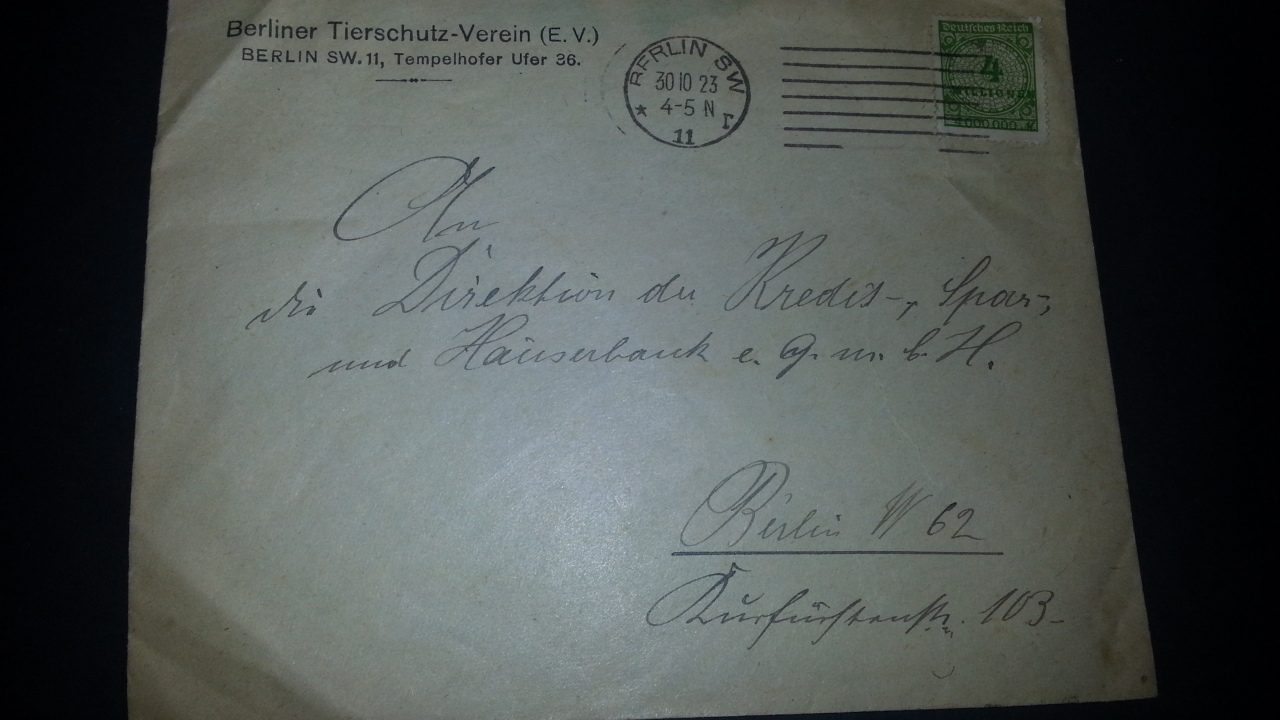 Berliner Tierschutz-Verein (E.V.)
BERLIN SW. 11, Tempelhofer Ufer 36.
BERLIN SW
30 10 23
4-5 N
* 11 r
Deutsches Reich
4
MILLIONEN
4000000
An
die Direktion der Kredit-, Spar-,
und Häuserbank e. G. m. b. H.
Berlin W 62
Kurfürstenstr. 103